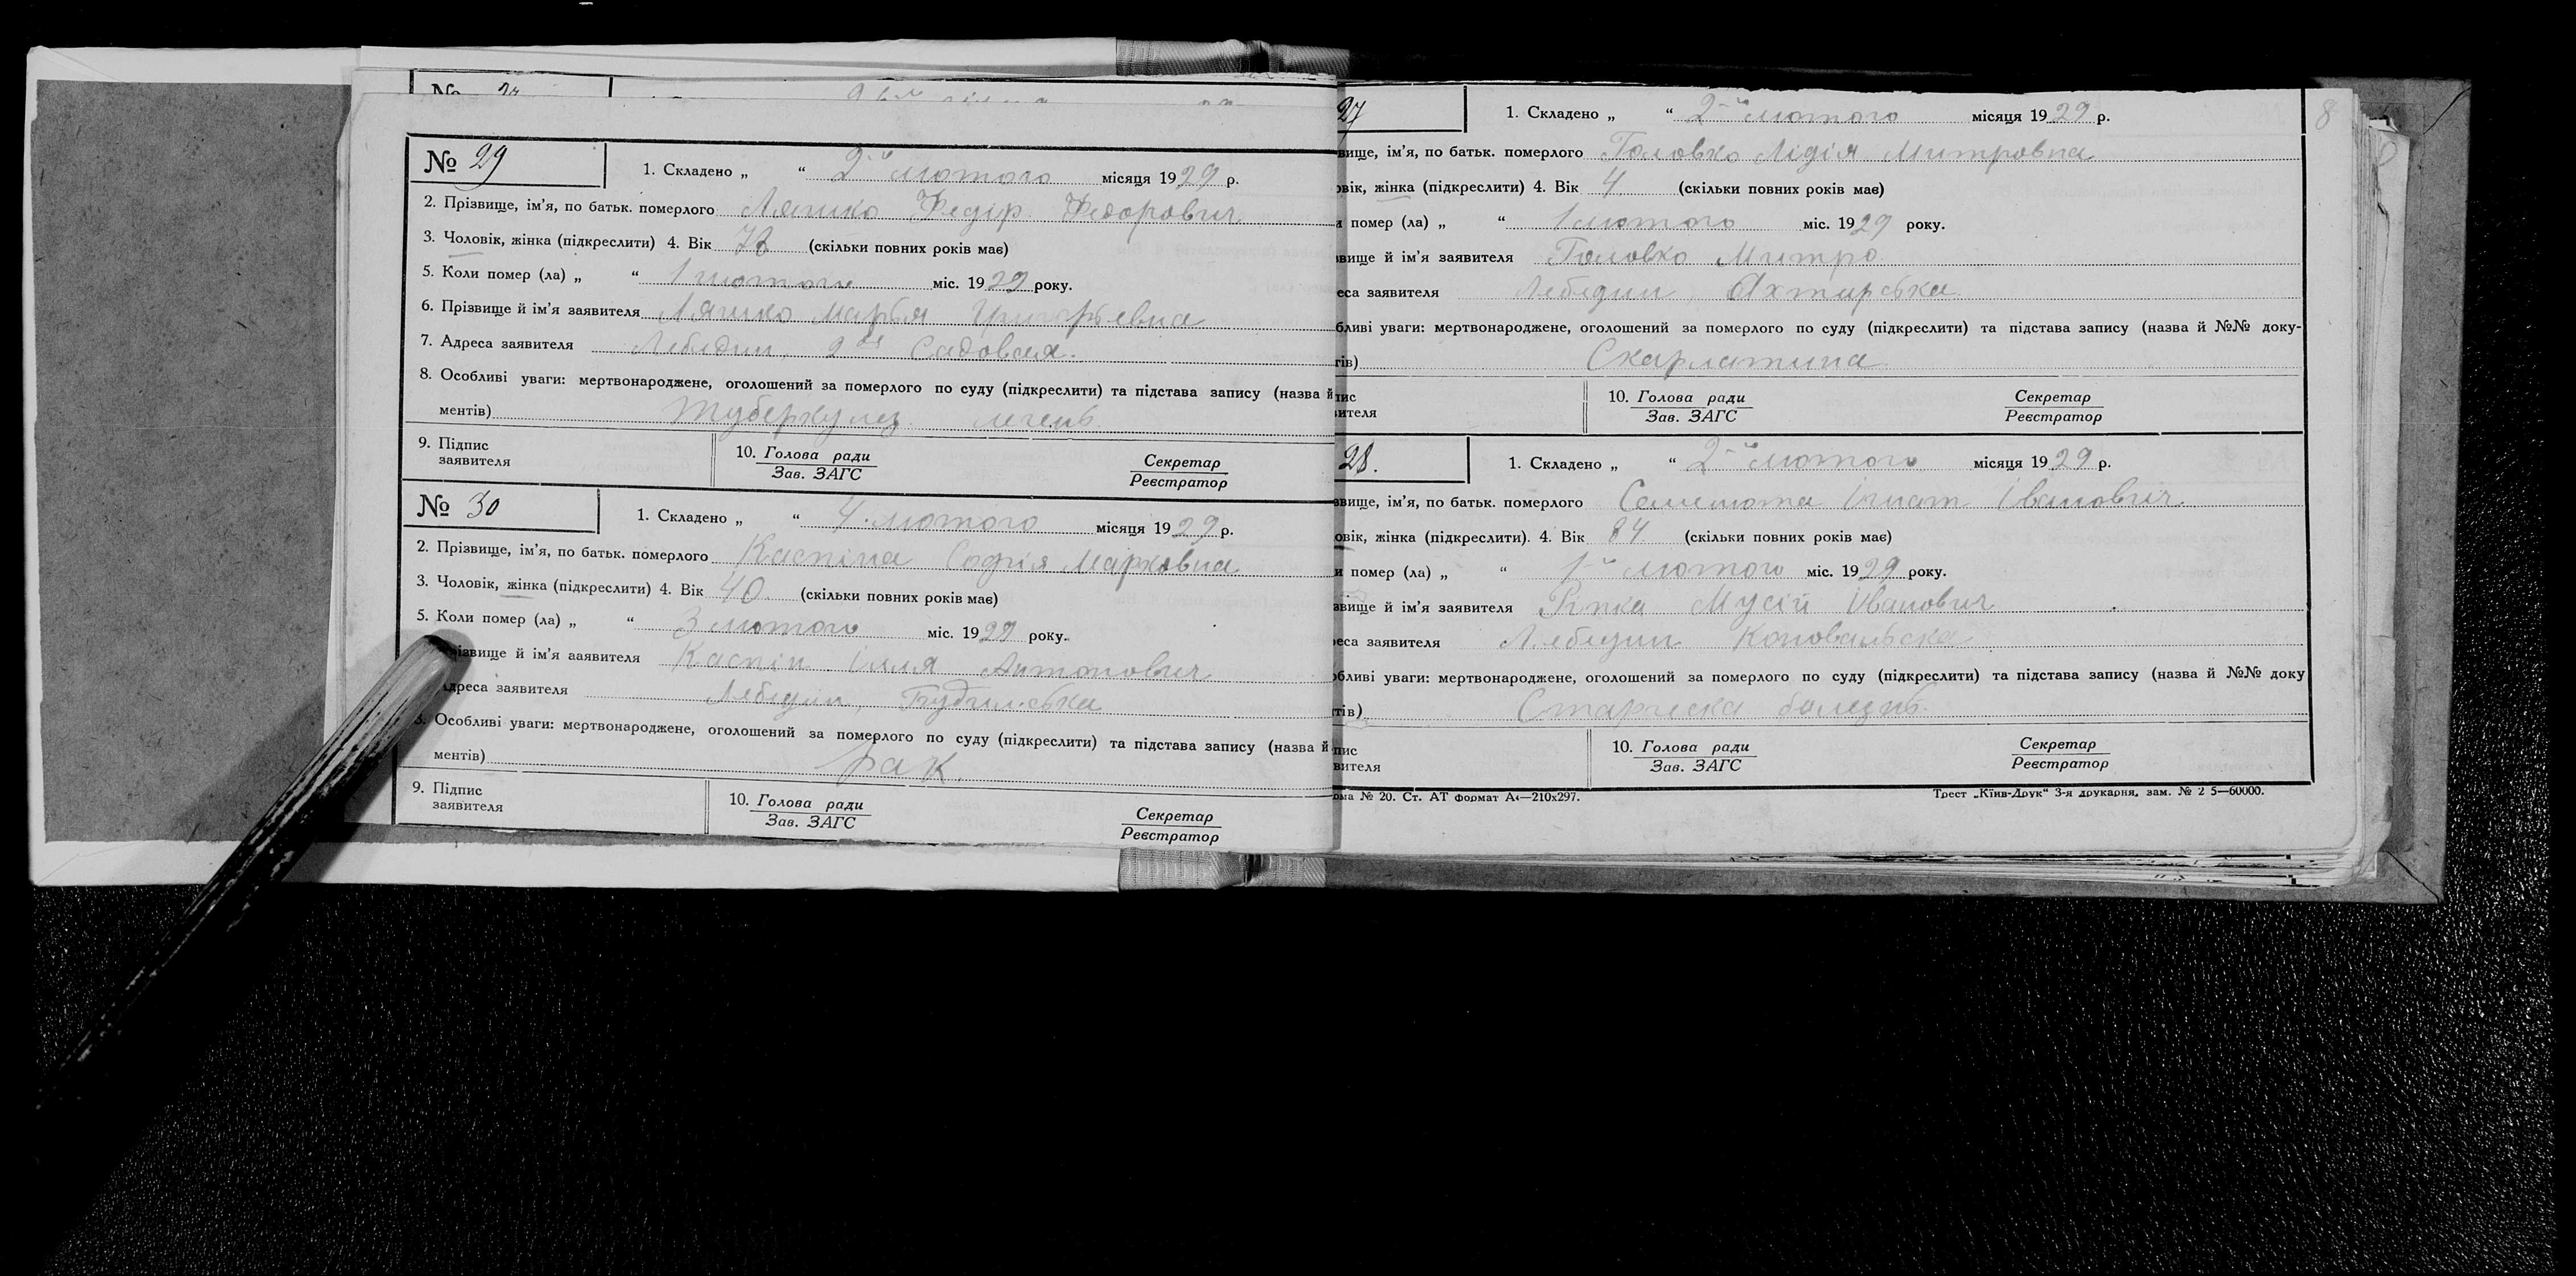 № 29
1. Складено „ “ 2-го лютого місяця 1929 р.
2. Прізвище, ім'я, по батьк. померлого Ляшко Федір Федорович
3. Чоловік, жінка (підкреслити) 4. Вік (скільки повних років має)
5. Коли помер (ла) „ “ 1 лютого міс. 1929 року.
6. Прізвище й ім'я заявителя Ляшко Марья Григорьевна
7. Адреса заявителя Лебедин, 2ая Садовая.
8. Особливі уваги: мертвонароджене, оголошений за померлого по суду (підкреслити) та підстава запису (назва й
ментів) Туберкулез легень
9. Підпис
заявителя
10. Голова ради
Зав. ЗАГС
Секретар
Реєстратор
№ 30
1. Складено „ “ 4 лютого місяця 1929 р.
2. Прізвище, ім'я, по батьк. померлого Каспіна Софія Марковна
3. Чоловік, жінка (підкреслити) 4. Вік 40. (скільки повних років має)
5. Коли помер (ла) „ “ 3 лютого міс. 1929 року.
різвище й ім'я ааявителя Каспін Ілля Антонович
дреса заявителя Лебедин, Будильська
8. Особливі уваги: мертвонароджене, оголошений за померлого по суду (підкреслити) та підстава запису (назва й
ментів) Рак.
9. Підпис
заявителя
10. Голова ради
Зав. ЗАГС
Секретар
Реєстратор
8
27
1. Складено „ “ 2-го лютого місяця 1929 р.
вище, ім'я, по батьк. померлого Головко Лідія Митровна
вік, жінка (підкреслити) 4. Вік 4 (скільки повних років має)
помер (ла) „ “ 1 лютого міс. 1929 року.
вище й ім'я заявителя Головко Митро
еса заявителя Лебедин, Охтирська
бливі уваги: мертвонароджене, оголошений за померлого по суду (підкреслити) та підстава запису (назва й №№ доку-
тів) Скарлатина
пис
вителя
10. Голова ради
Зав. ЗАГС
Секретар
Реєстратор
28.
1. Складено „ “ 2-го лютого місяця 1929 р.
звище, ім'я, по батьк. померлого Ігнат Іванович
овік, жінка (підкреслити). 4. Вік 84 (скільки повних років має)
и помер (ла) „ “ 1го лютого міс. 1929 року.
звище й ім'я заявителя Ріпка Мусій Іванович
реса заявителя Лебедин Коновальска
обливі уваги: мертвонароджене, оголошений за померлого по суду (підкреслити) та підстава запису (назва й №№ доку
тів) Старческа болезнь.
пис
вителя
10. Голова ради
Зав. ЗАГС
Секретар
Реєстратор
ома № 20. Ст. АТ Формат А4—210x297.
Трест „Київ-Друк“ 3-я друкарня, зам. № 2 5—60000.